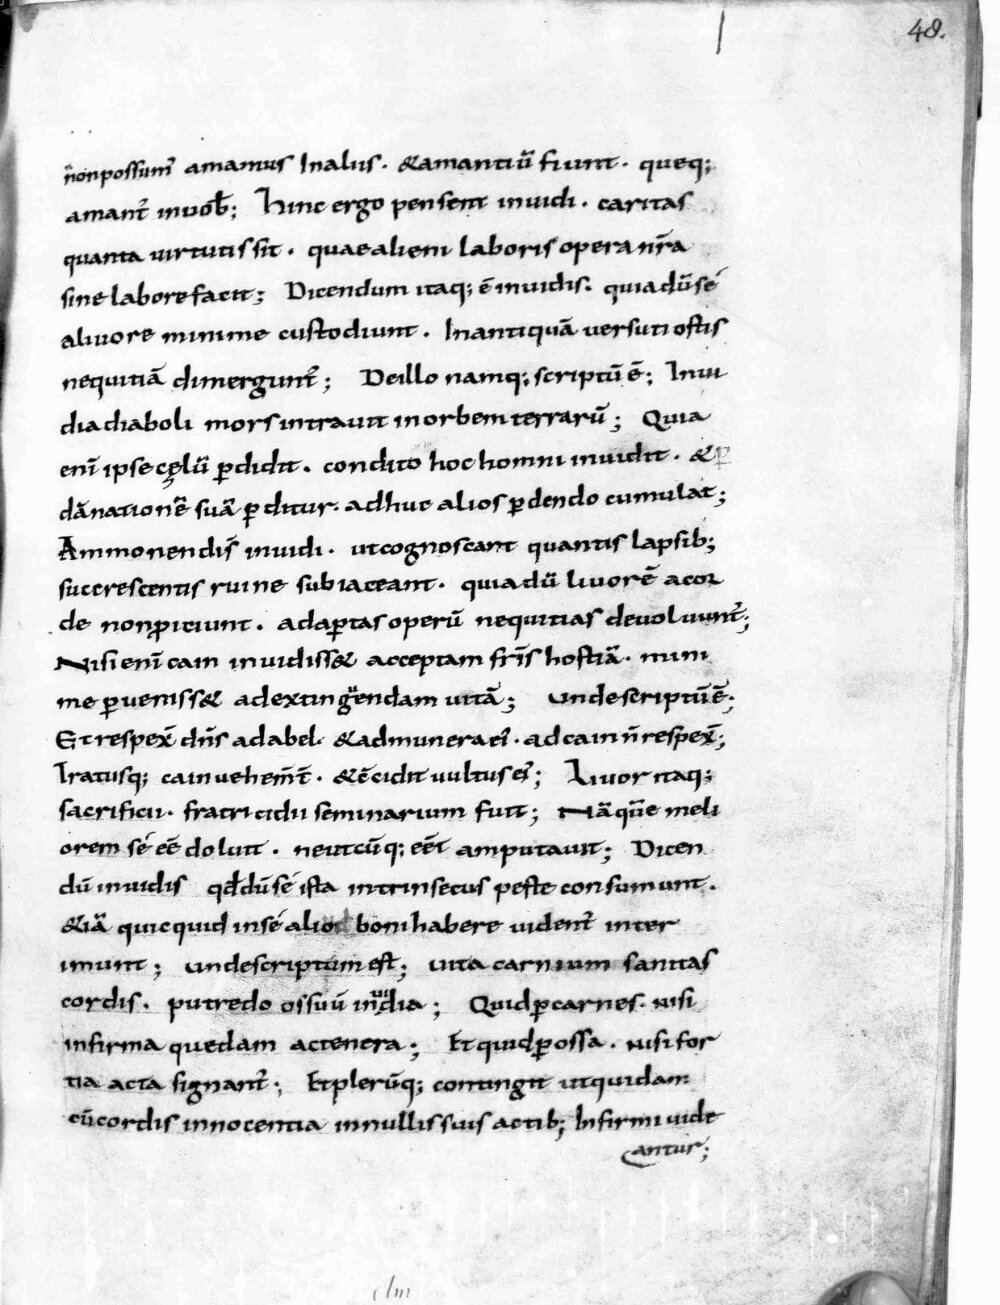 48.
n̄ non possum᷒ amamus In alus. & amantiū fiunt. queq;
amant᷒ in uob̄; Hinc ergo pensent inuidi. caritas
quanta uirtutis sit. quae alieni laboris opera nr̄a
sine labore facit; Dicendum itaq; ē inuidis. quia dū sé
a liuore minime custodiunt. In antiquā uersuti ostis
nequitiā dimergunt᷒; De illo namq; scriptū ē; Inui
dia diaboli mors intrauit in orbem terrarū; Quia
eni̅ ipse cęlū ꝑdidit. condito hoc homni inuidit. & ꝑ
dānationē suā ꝑditur. adhuc alios ꝑdendo cumulat;
Ammonendis᷒ inuidi. ut cognoscant quantis lapsib;
succrescentis ruine subiaceant. quia dū liuorē a cor
de non ꝓiciunt. ad aꝑtas operū nequitias deuoluunt᷒;
Nisi eni̅ cain inuidiss& acceptam fr̄is hostiā. mini
me ꝑueniss& ad extinguendam uitā; Unde scriptū ē;
Et respex̄ dn̄s ad abel. & ad munera ei᷒. ad cain n̄ respex̄;
Iratusq; cain uehem̄t̄. & c̄cidit uultus ei᷒; Liuor itaq;
sacrificii. fratricidii seminarium fuit; Nā quē meli
orem sé eē doluit. ne utcūq; eēt amputauit; Dicen
dū inuidis qd̄ dū sé ista intrinsecus peste consumunt.
&iā quicquid in sé alio boni habere uident᷒ inter
imunt; Unde scriptum est; Uita carnium sanitas
cordis. putredo ossuū inuidia; Quid ꝑ carnes. nisi
infirma quedam ac tenera; Et quid ꝑ ossa. nisi for
tia acta signant᷒; Et plerūq; contingit ut quidam
cū cordis innocentia in nullis suis actib; Infirmi uide
antur;